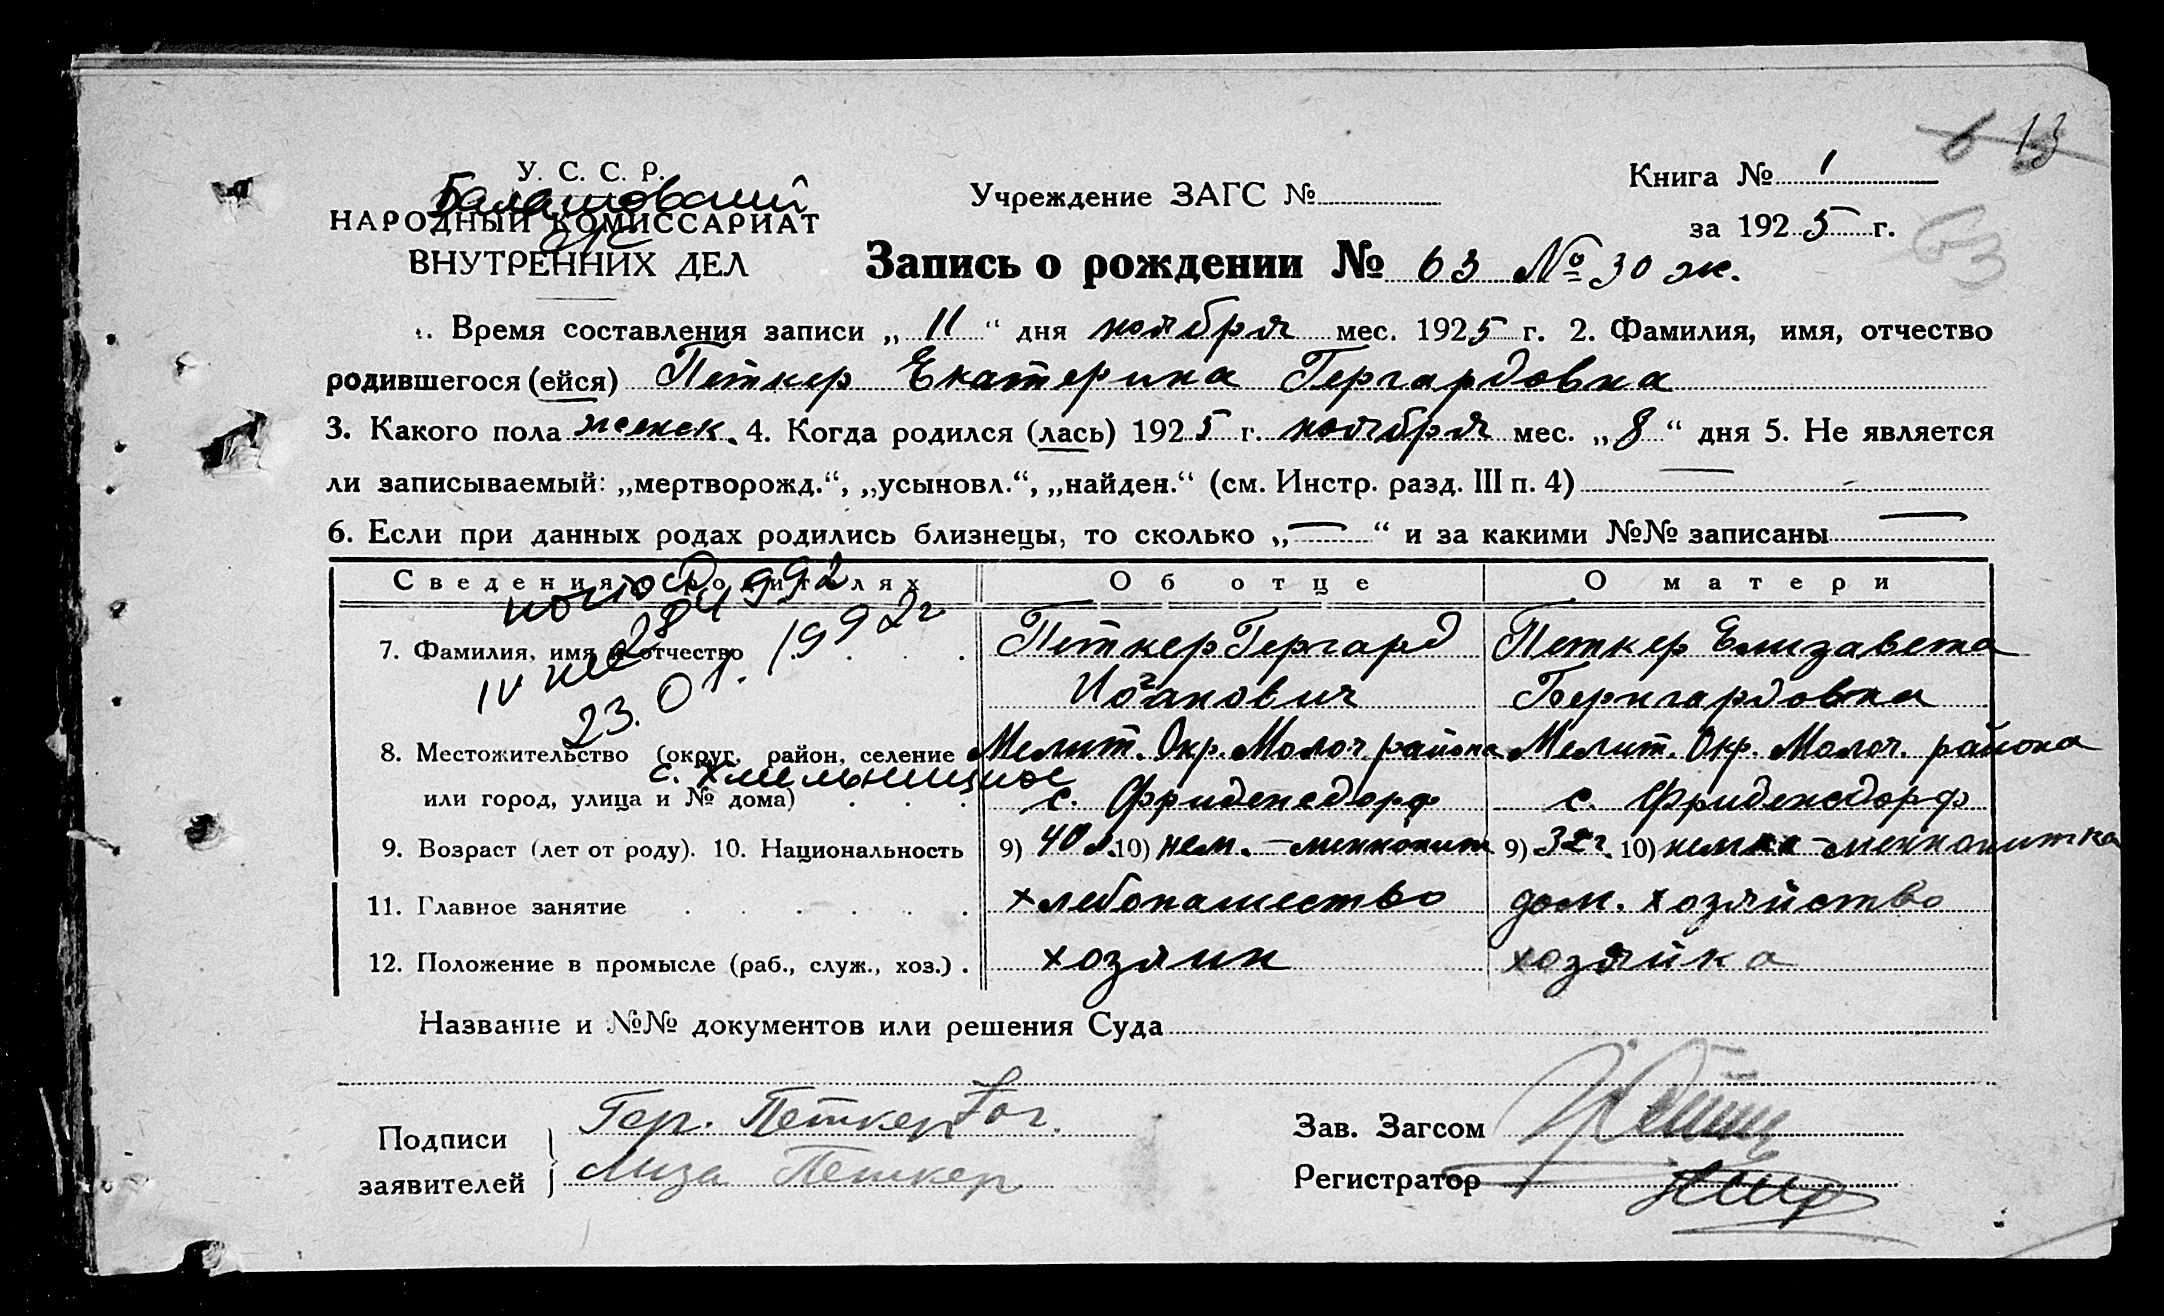 6 13
У. С. С. Р.
Балашовский
НАРОДНЫЙ КОМИССАРИАТ
ВНУТРЕННИХ ДЕЛ
Учреждение ЗАГС №
Книга № 1
за 1925 г.
63
Запись о рождении № 63 № 30 ж.
1. Время составления записи „11“ дня ноября мес. 1925 г. 2. Фамилия, имя, отчество
родившегося (ейся) Петкер Екатерина Гергардовна
3. Какого пола женск. 4. Когда родился (лась) 1925 г. ноября мес. „8“ дня 5. Не является
ли записываемый: „мертворожд.“, „усыновл.“, „найден.“ (см. Инстр. разд. III п. 4) —
6. Если при данных родах родились близнецы, то сколько „—“ и за какими №№ записаны —
Сведения о родителях Об отце О матери
992
284
IV
23.01.1992г
7. Фамилия, имя и отчество Петкер Гергард Петкер Елизавета
Иоганович Бернгардовна
8. Местожительство (округ, район, селение Мелит. Окр. Молоч. района Мелит. Окр. Молоч. района
с. Хмельницкое
или город, улица и № дома) с. Фриденсдорф с. Фриденсдорф
9. Возраст (лет от роду). 10. Национальность 9) 40 л. 10) нем. – меннонит 9) 32 г. 10) немка – меннонитка
11. Главное занятие хлебопашество дом. хозяйство
12. Положение в промысле (раб., служ., хоз.) . хозяин хозяйка
Название и №№ документов или решения Суда
Подписи заявителей
Гер. Петкер Иог.
Лиза Петкер
Зав. Загсом
Регистратор